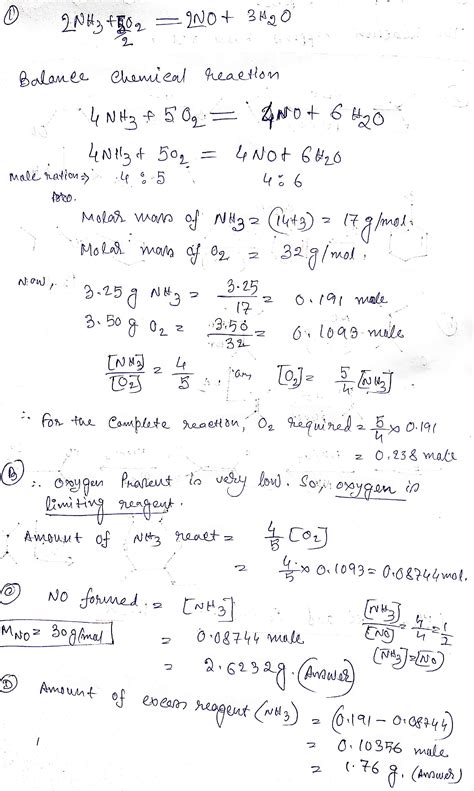 ①
2NH3 + 5/2 O2 = 2NO + 3H2O
Balance Chemical reaction
4NH3 + 5O2 = 4NO + 6H2O
4NH3 + 5O2 = 4NO + 6H2O
Mole ration ⇒ 4 : 5 4 : 6
Molar mass of NH3 = (14+3) = 17 g/mol.
Molar mass of O2 = 32 g/mol.
Now,
3.25 g NH3 = 3.25/17 = 0.191 mole
3.50 g O2 = 3.50/32 = 0.1093 mole
[NH3]/[O2] = 4/5. or, [O2] = 5/4 [NH3].
∴ For the complete reaction, O2 required = 5/4 × 0.191
= 0.238 mole
Ⓑ ∴ Oxygen Present is very low. So, oxygen is
limiting reagent.
∴ Amount of NH3 react = 4/5 [O2]
= 4/5 × 0.1093 = 0.08744 mol.
NO formed = [NH3] [NH3]/[NO] = 4/4 = 1/2
MNO = 30 g/mol = 0.08744 mole [NH3] = [NO]
= 2.6232 g. (Answer)
Ⓓ Amount of excess reagent (NH3) = (0.191 − 0.08744)
= 0.10356 mole
= 1.76 g. (Answer)